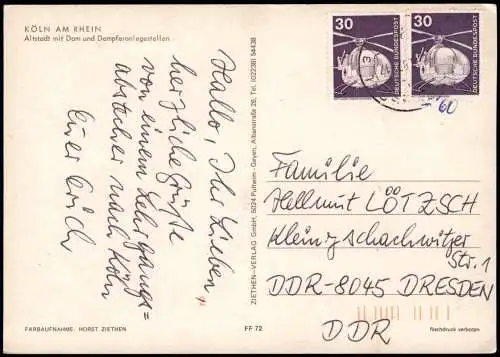 KÖLN AM RHEIN
Altstadt mit Dom und Dampferanlegestellen
Hallo, Ihr Lieben
herzliche Grüße
von einem Lehrgangs=
abstecher nach Köln
Euer Erich
ZIETHEN-VERLAG GmbH, 5024 Pulheim-Geyen, Albanstraße 29, Tel. (02238) 54438
30
DEUTSCHE BUNDESPOST
30
DEUTSCHE BUNDESPOST
60
Familie
Hellmut LÖTZSCH
Kleinzschachwitzer
Str. 1
DDR-8045 DRESDEN
DDR
FARBAUFNAHME: HORST ZIETHEN
FF 72
Nachdruck verboten